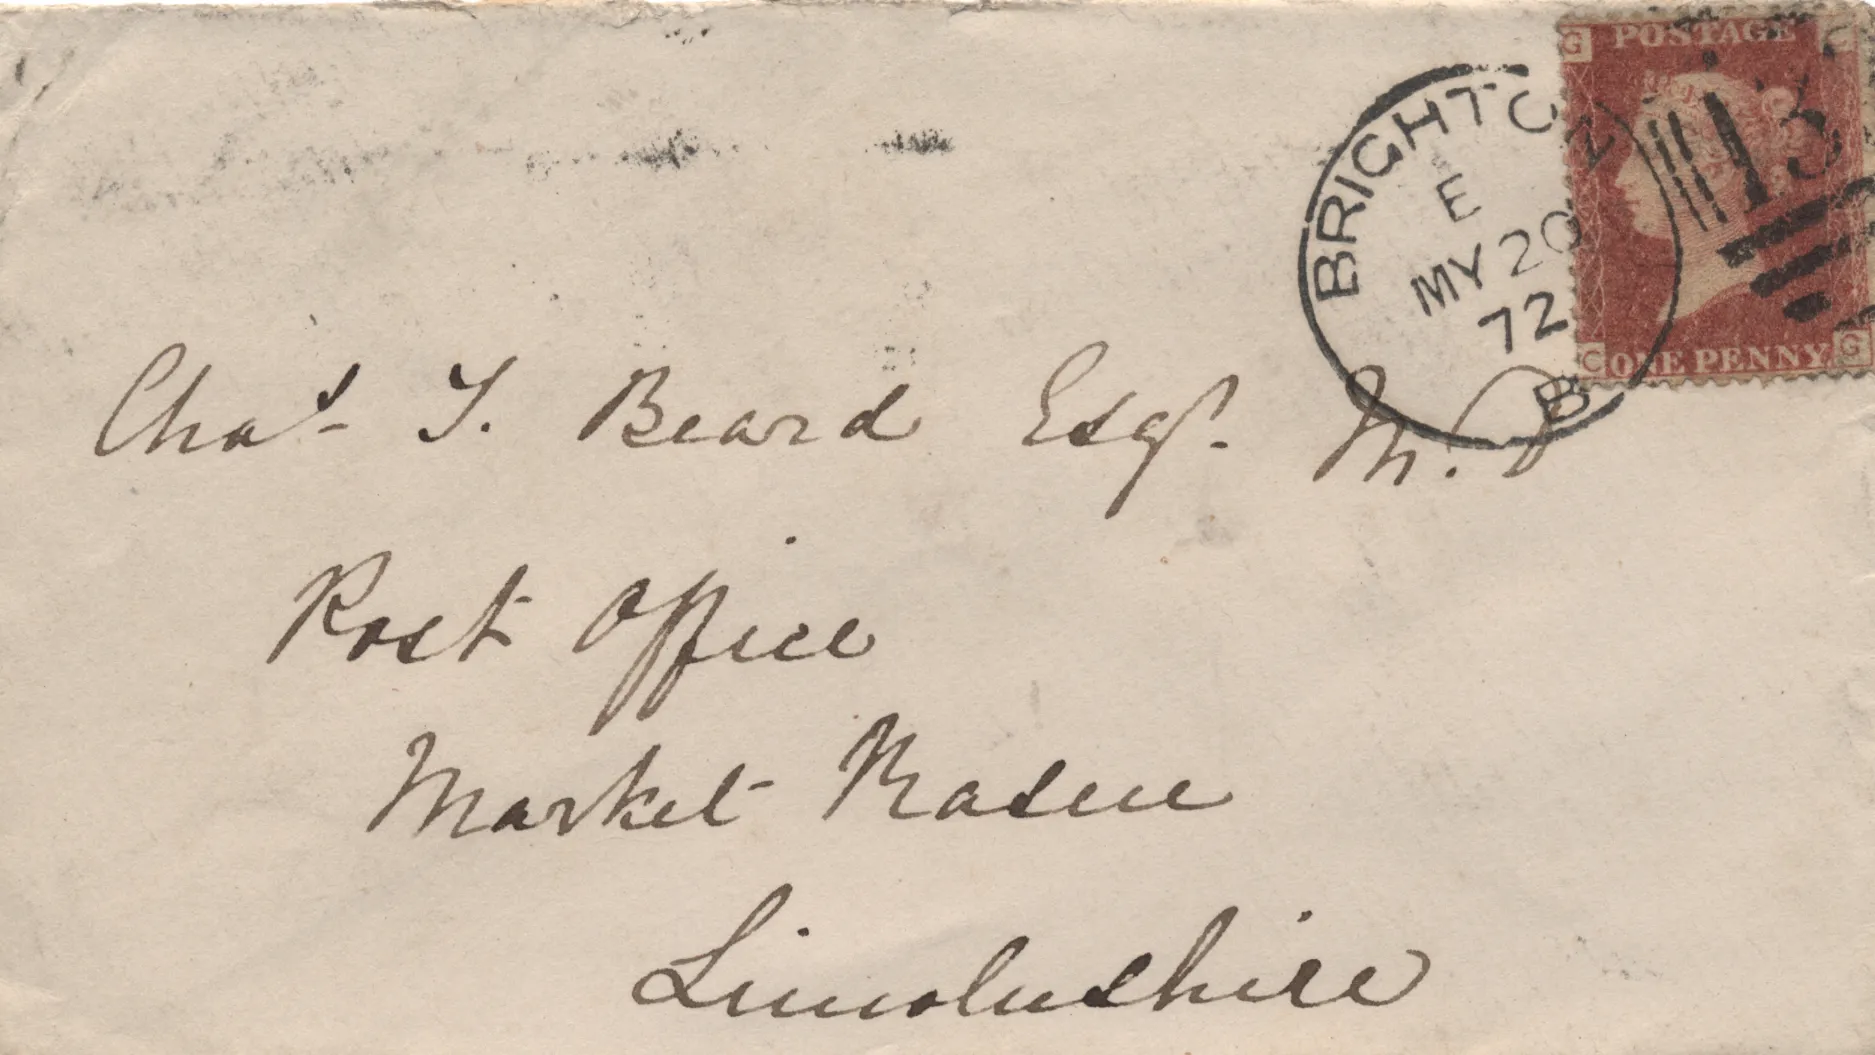 G POSTAGE C
BRIGHTON
E
MY 20
72
B
13
C ONE PENNY G
Chas. T. Beard Esqr. M.D
Post Office
Market Rasen
Lincolnshire